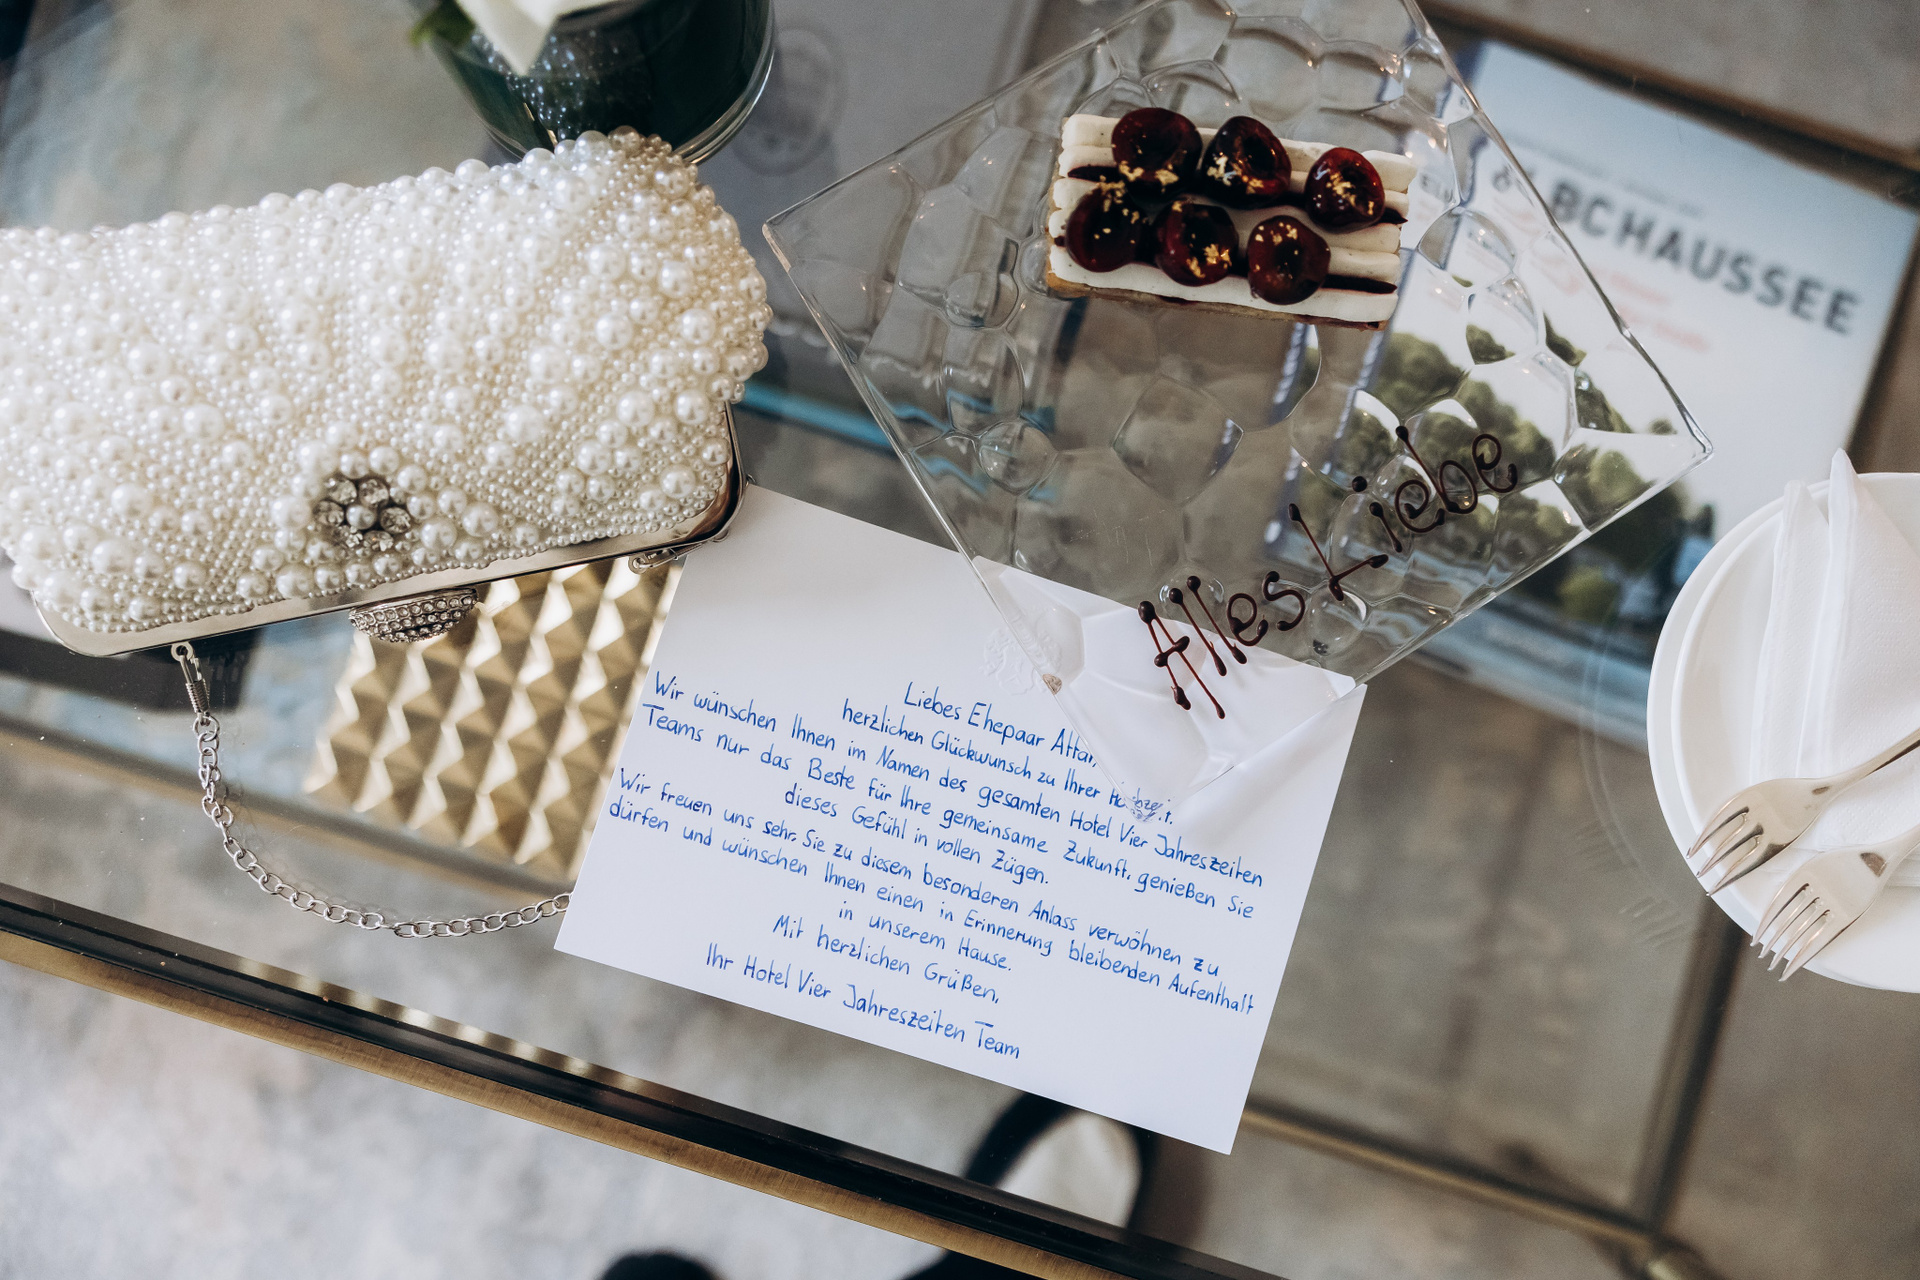 BCHAUSSEE
Alles Liebe
Liebes Ehepaar
herzlichen Glückwunsch zu Ihrer Hochzeit.
Wir wünschen Ihnen im Namen des gesamten Hotel Vier Jahreszeiten
Teams nur das Beste für Ihre gemeinsame Zukunft, genießen Sie
dieses Gefühl in vollen Zügen.
Wir freuen uns sehr, Sie zu diesem besonderen Anlass verwöhnen zu
dürfen und wünschen Ihnen einen in Erinnerung bleibenden Aufenthalt
in unserem Hause.
Mit herzlichen Grüßen,
Ihr Hotel Vier Jahreszeiten Team